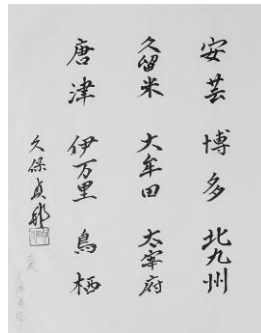 安芸 博多 北九州
久留米 大牟田 太宰府
唐津 伊万里 鳥栖
久保貞